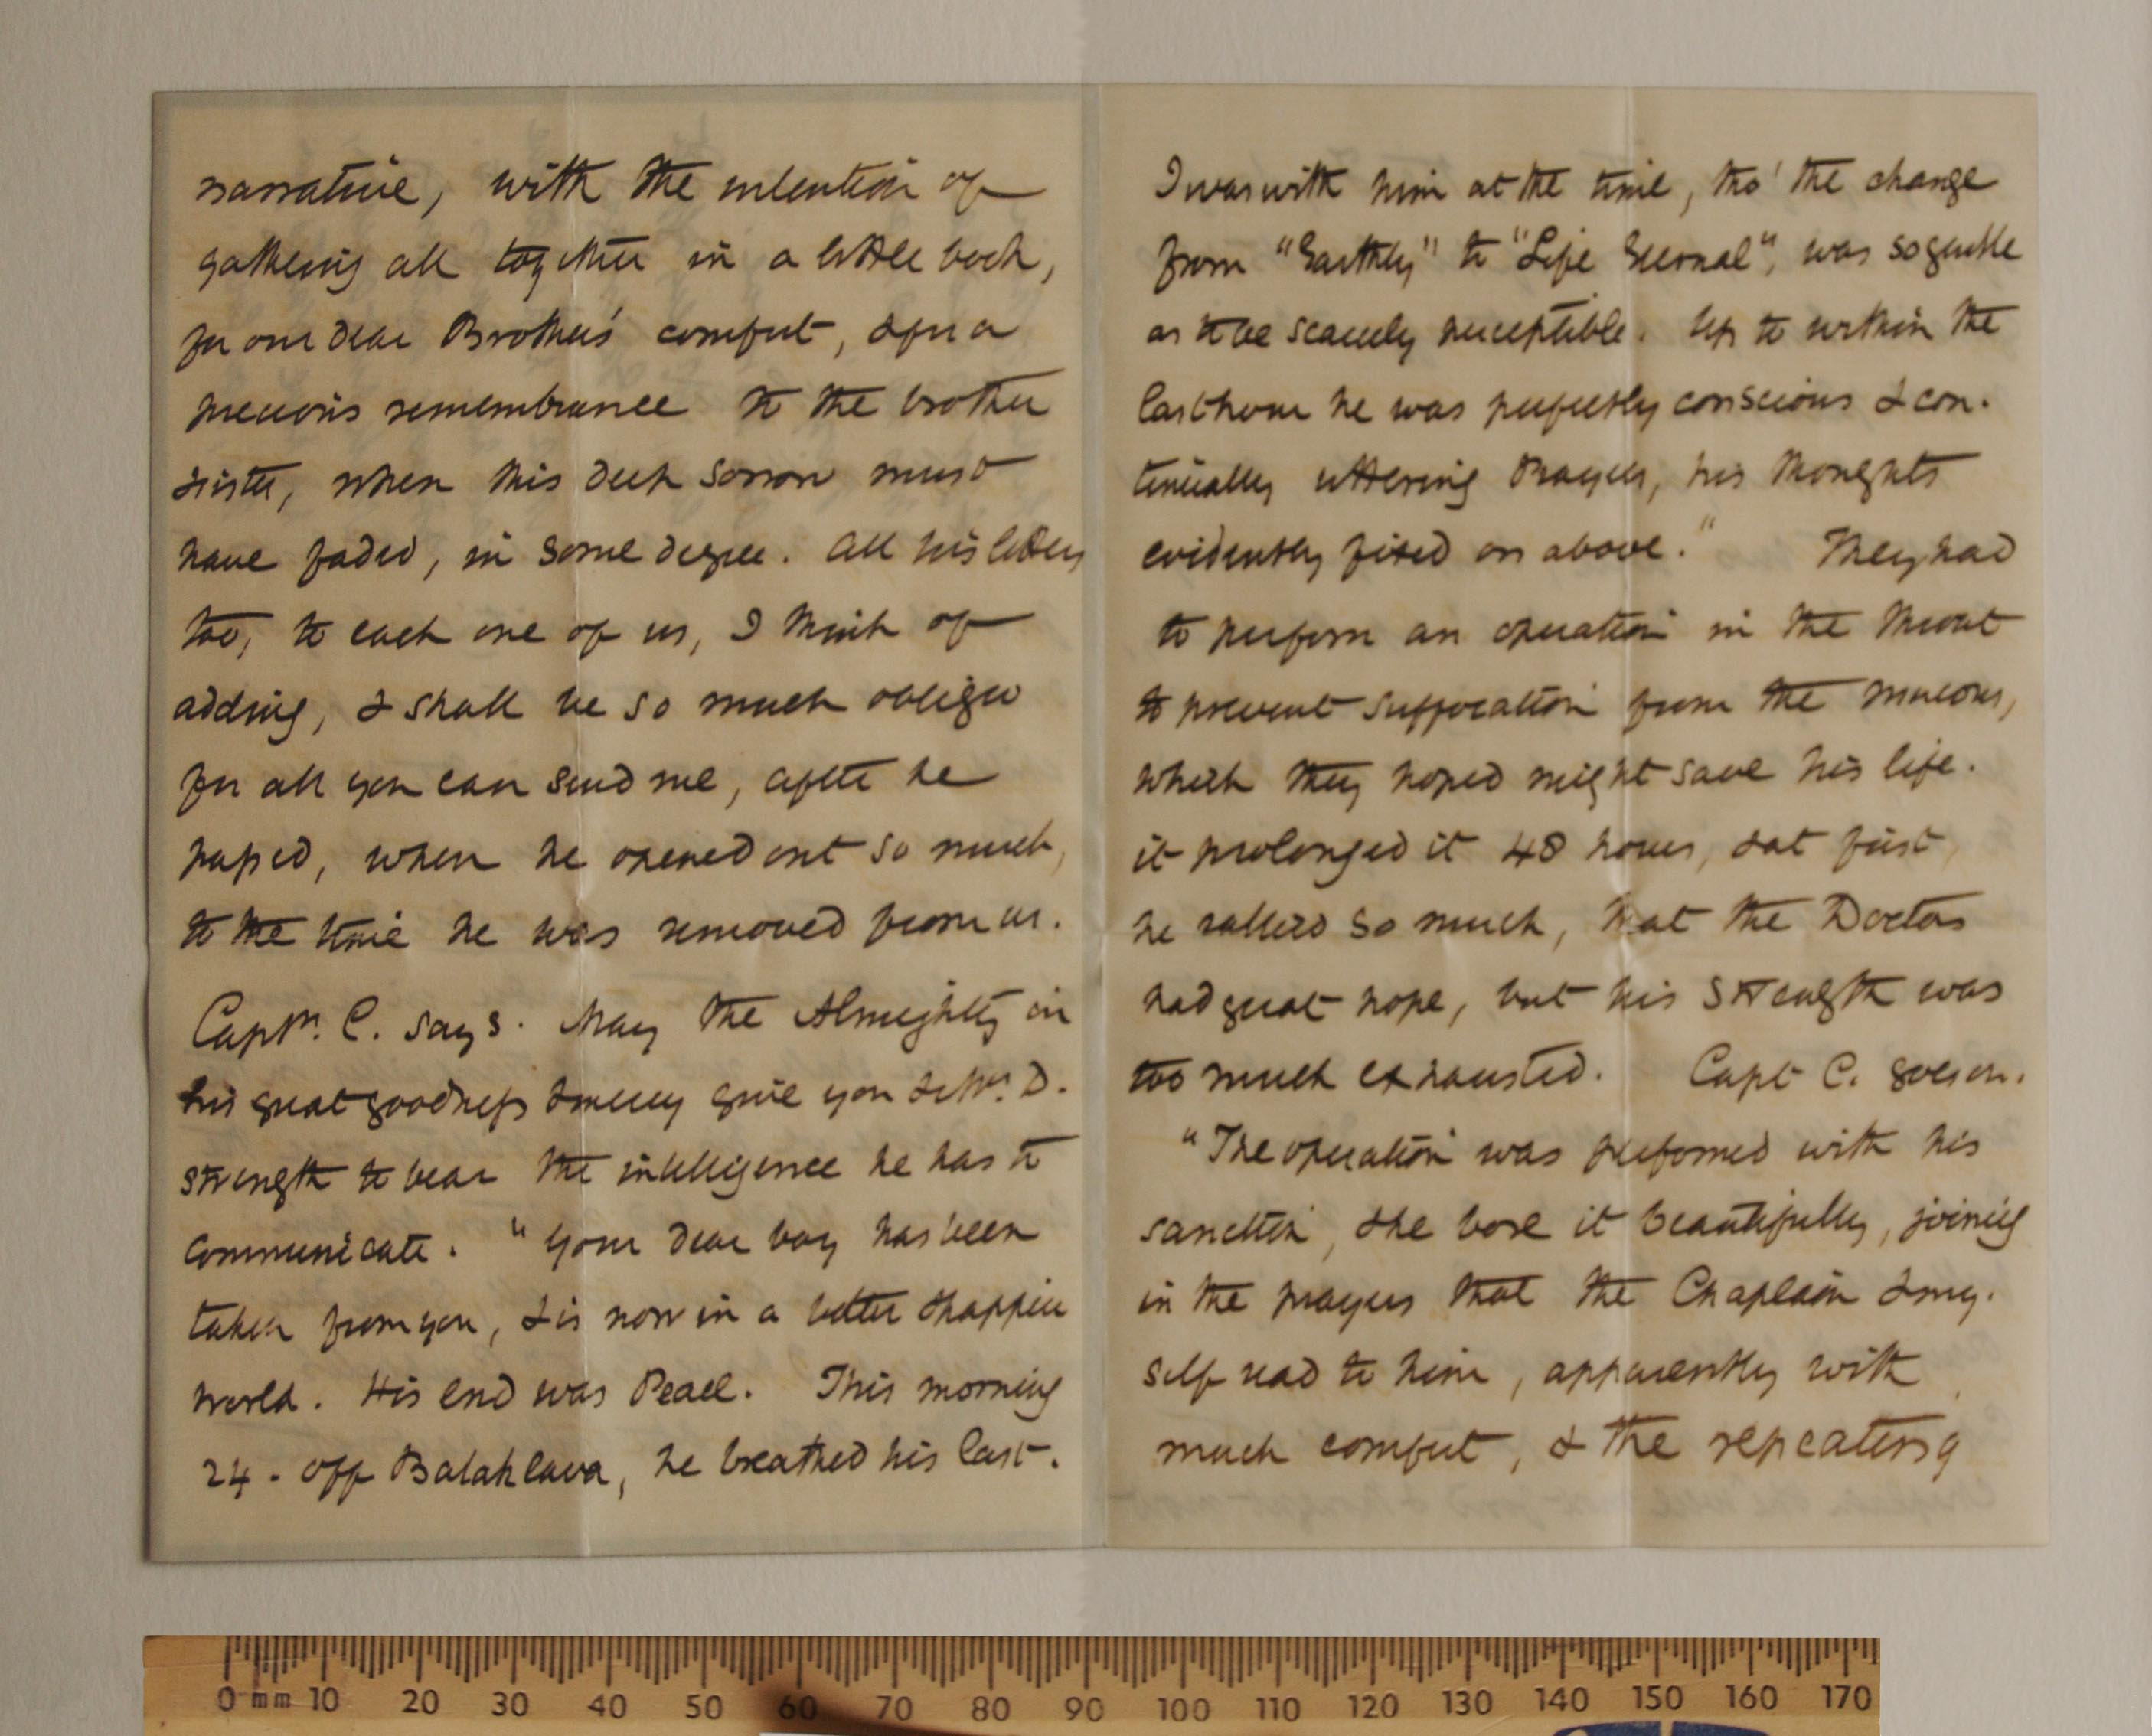 narrative, with the intention of
gathering all together in a little book,
for our dear Brother's comfort, & for a
precious remembrance to the brother
& sister, when this deep sorrow must
have faded, in some degree. All his letters
too, to each one of us, I think of
adding, & shall be so much obliged
for all you can send me, after he
passed, when he opened out so much,
to the time he was removed from us.
Captn. C. says. May the Almighty in
his great goodness & mercy give you & Mrs. D.
strength to bear the intelligence he has to
communicate. "Your dear boy has been
taken from you, & is now in a better & happier
world. His end was Peace. This morning
24. off Balaklava, he breathed his last.
I was with him at the time, tho' the change
from "Earthly" to "Life Eternal", was so gentle
as to be scarcely perceptible. Up to within the
last hour he was perfectly conscious & con-
tinually uttering Prayers, his thoughts
evidently fixed on above." They had
to perform an operation in the throat
to prevent suffocation from the mucous,
which they hoped might save his life.
it prolonged it 48 hours, & at first,
he rallied so much, that the Doctors
had great hope, but his strength was
too much exhausted. Capt C. goes on.
"The operation was performed with his
sanction, & he bore it beautifully, joining
in the prayers that the Chaplain & my-
self read to him, apparently with
much comfort, & the repeating
0 mm 10 20 30 40 50 60 70 80 90 100 110 120 130 140 150 160 170